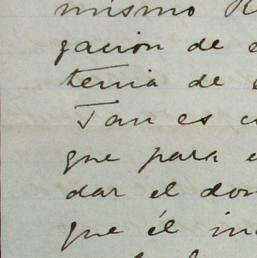 mismo
gacion de
tenia de
Tan es
que para
dar el don
que él in